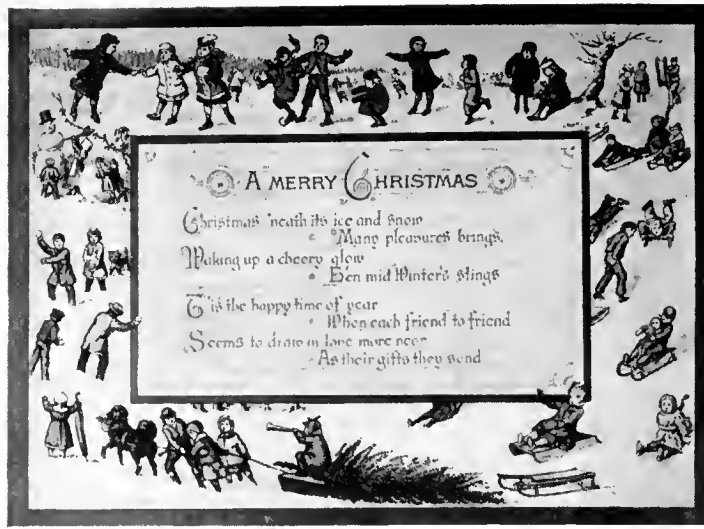 A MERRY CHRISTMAS
Christmas 'neath its ice and snow
Many pleasures brings,
Waking up a cheery glow
E'en mid Winter's stings
'Tis the happy time of year
When each friend to friend
Seems to draw in love more near
As their gifts they send